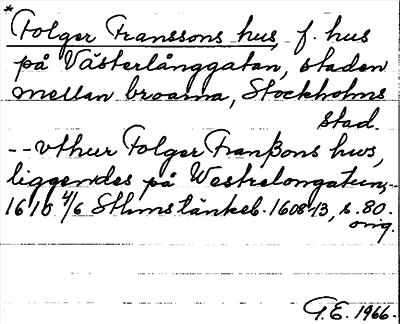 * Folger Franssons hus, f. hus
på Västerlånggatan, staden
mellan broarna, Stockholms
stad.
-- vthur Folger Franßons hws,
liggendes på Westrelongatun; --
1610 4/6 Sthms tänkeb. 1608-13, s. 80.
orig.
G.E. 1966.